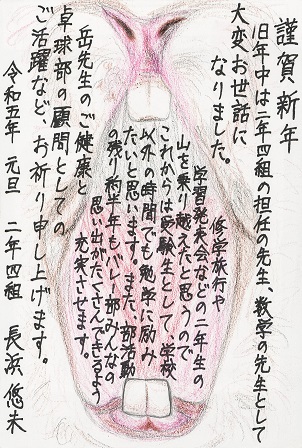 謹賀新年
旧年中は二年四組の担任の先生、数学の先生として
大変お世話に
なりました。
修学旅行や
学習発表会などの二年生の
山を乗り越えたと思うので
これからは受験生として、学校
以外の時間でも勉学に励み
たいと思います。また、部活動
の残り約半年もバレー部みんなの
思い出がたくさんできるよう
充実させます。
岳先生のご健康と
卓球部の顧問としての
ご活躍など、お祈り申し上げます。
令和五年 元旦 二年四組 長浜悠未